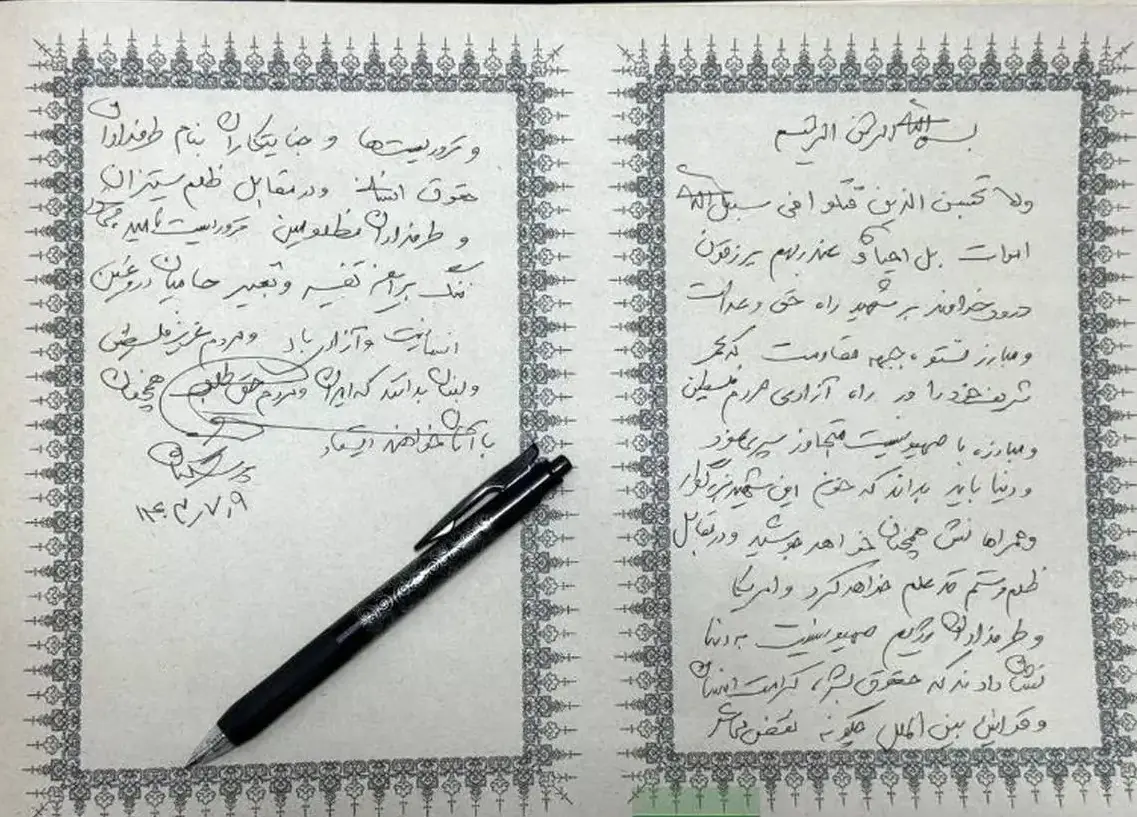 بسم الله الرحمن الرحیم
ولا تحسبن الذین قتلوا فی سبیل الله
اموات بل احیاء عند ربهم یرزقون
درود خداوند بر شهید راه حق و عدالت
و مبارز نستوه جبهه مقاومت که عمر
شریف خود را در راه آزادی مردم فلسطین
و مبارزه با صهیونیست متجاوز سپری نمود
و دنیا باید بداند که خون این شهید بزرگوار
و همراهانش همچنان خواهد جوشید و در مقابل
ظلم و ستم قد علم خواهد کرد و امریکا
و طرفداران رژیم صهیونیست به دنیا
نشان دادند که حقوق بشر، کرامت انسان
و قوانین بین الملل چگونه نقض
و تروریست‌ها و جنایتکاران بنام طرفداران
حقوق انسان و در مقابل ظلم ستیزان
و طرفداران مظلومین تروریست نامید
ننگ بر این تفسیر و تعبیر حامیان دروغین
انسانیت و آزادی باد و مردم عزیز فلسطین
و لبنان بدانند که ایران و مردم حق طلب همچنان
با آنان خواهند ایستاد
پزشکیان
۱۴۰۳/۷/۹